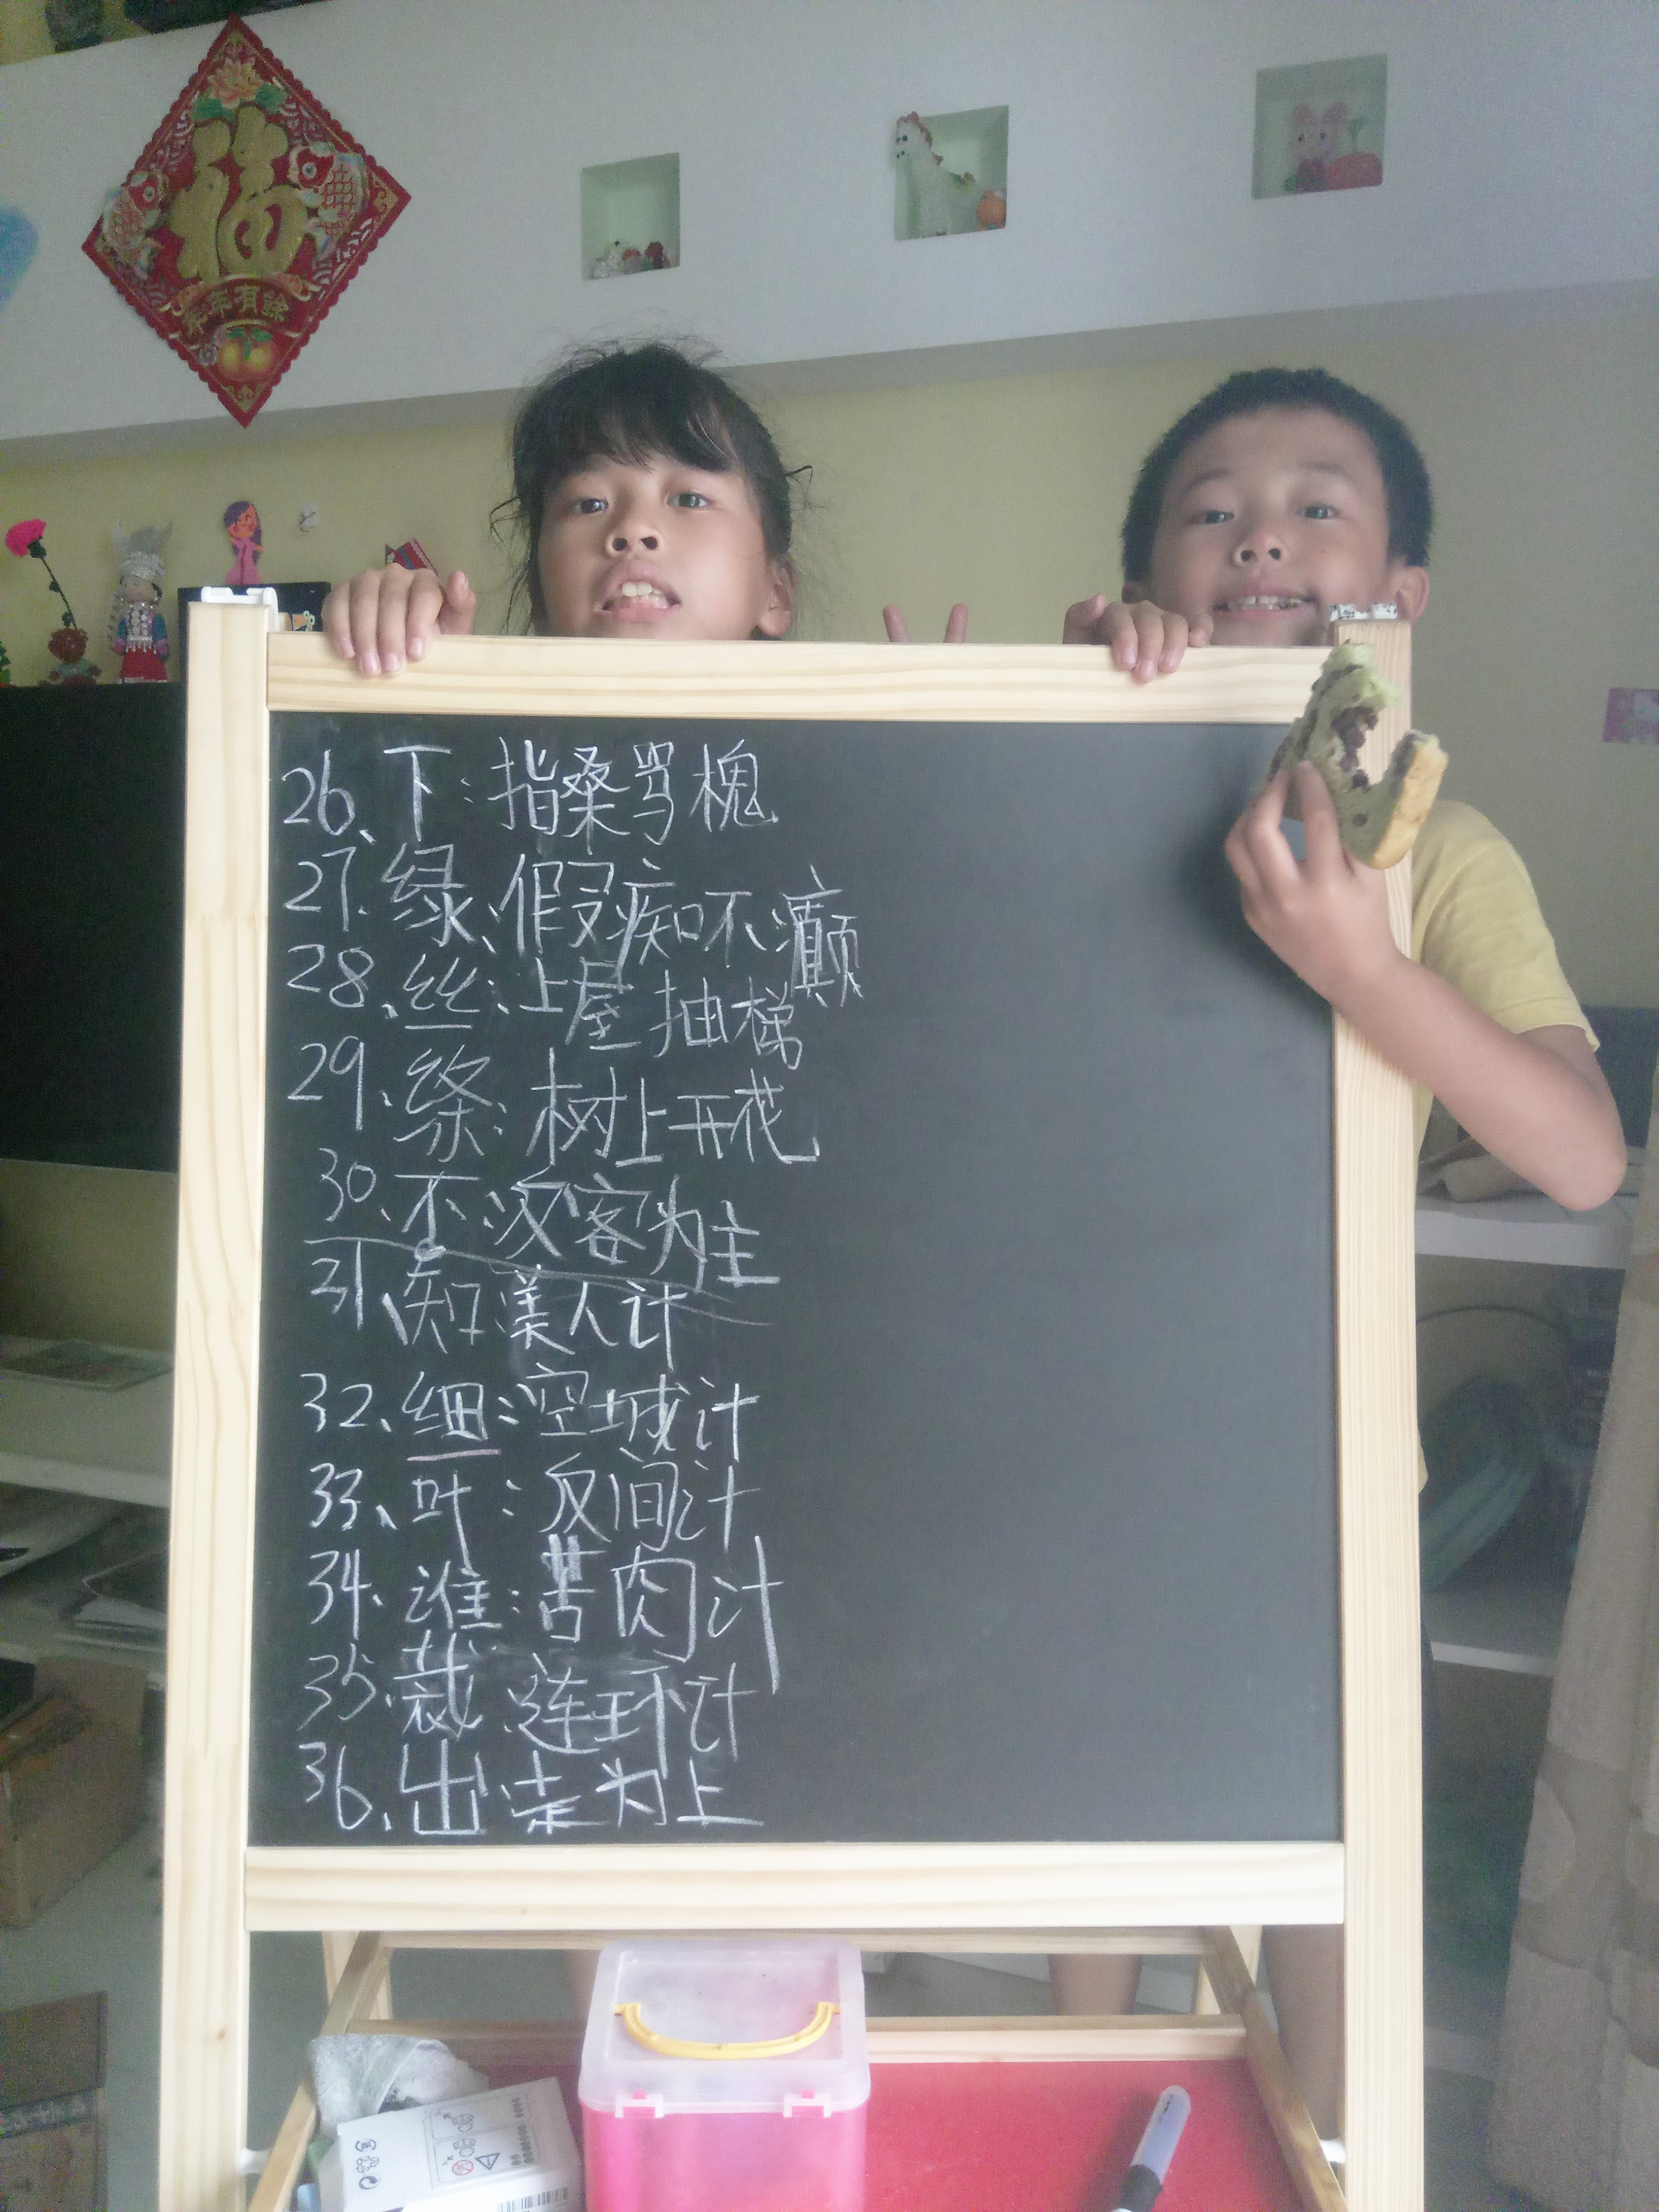 福
年年有餘
26、下:指桑骂槐
27、绿:假痴不癫
28、丝:上屋抽梯
29、条:树上开花
30、不:反客为主
31、知:美人计
32、细:空城计
33、叶:反间计
34、谁:苦肉计
35、裁:连环计
36、出:走为上